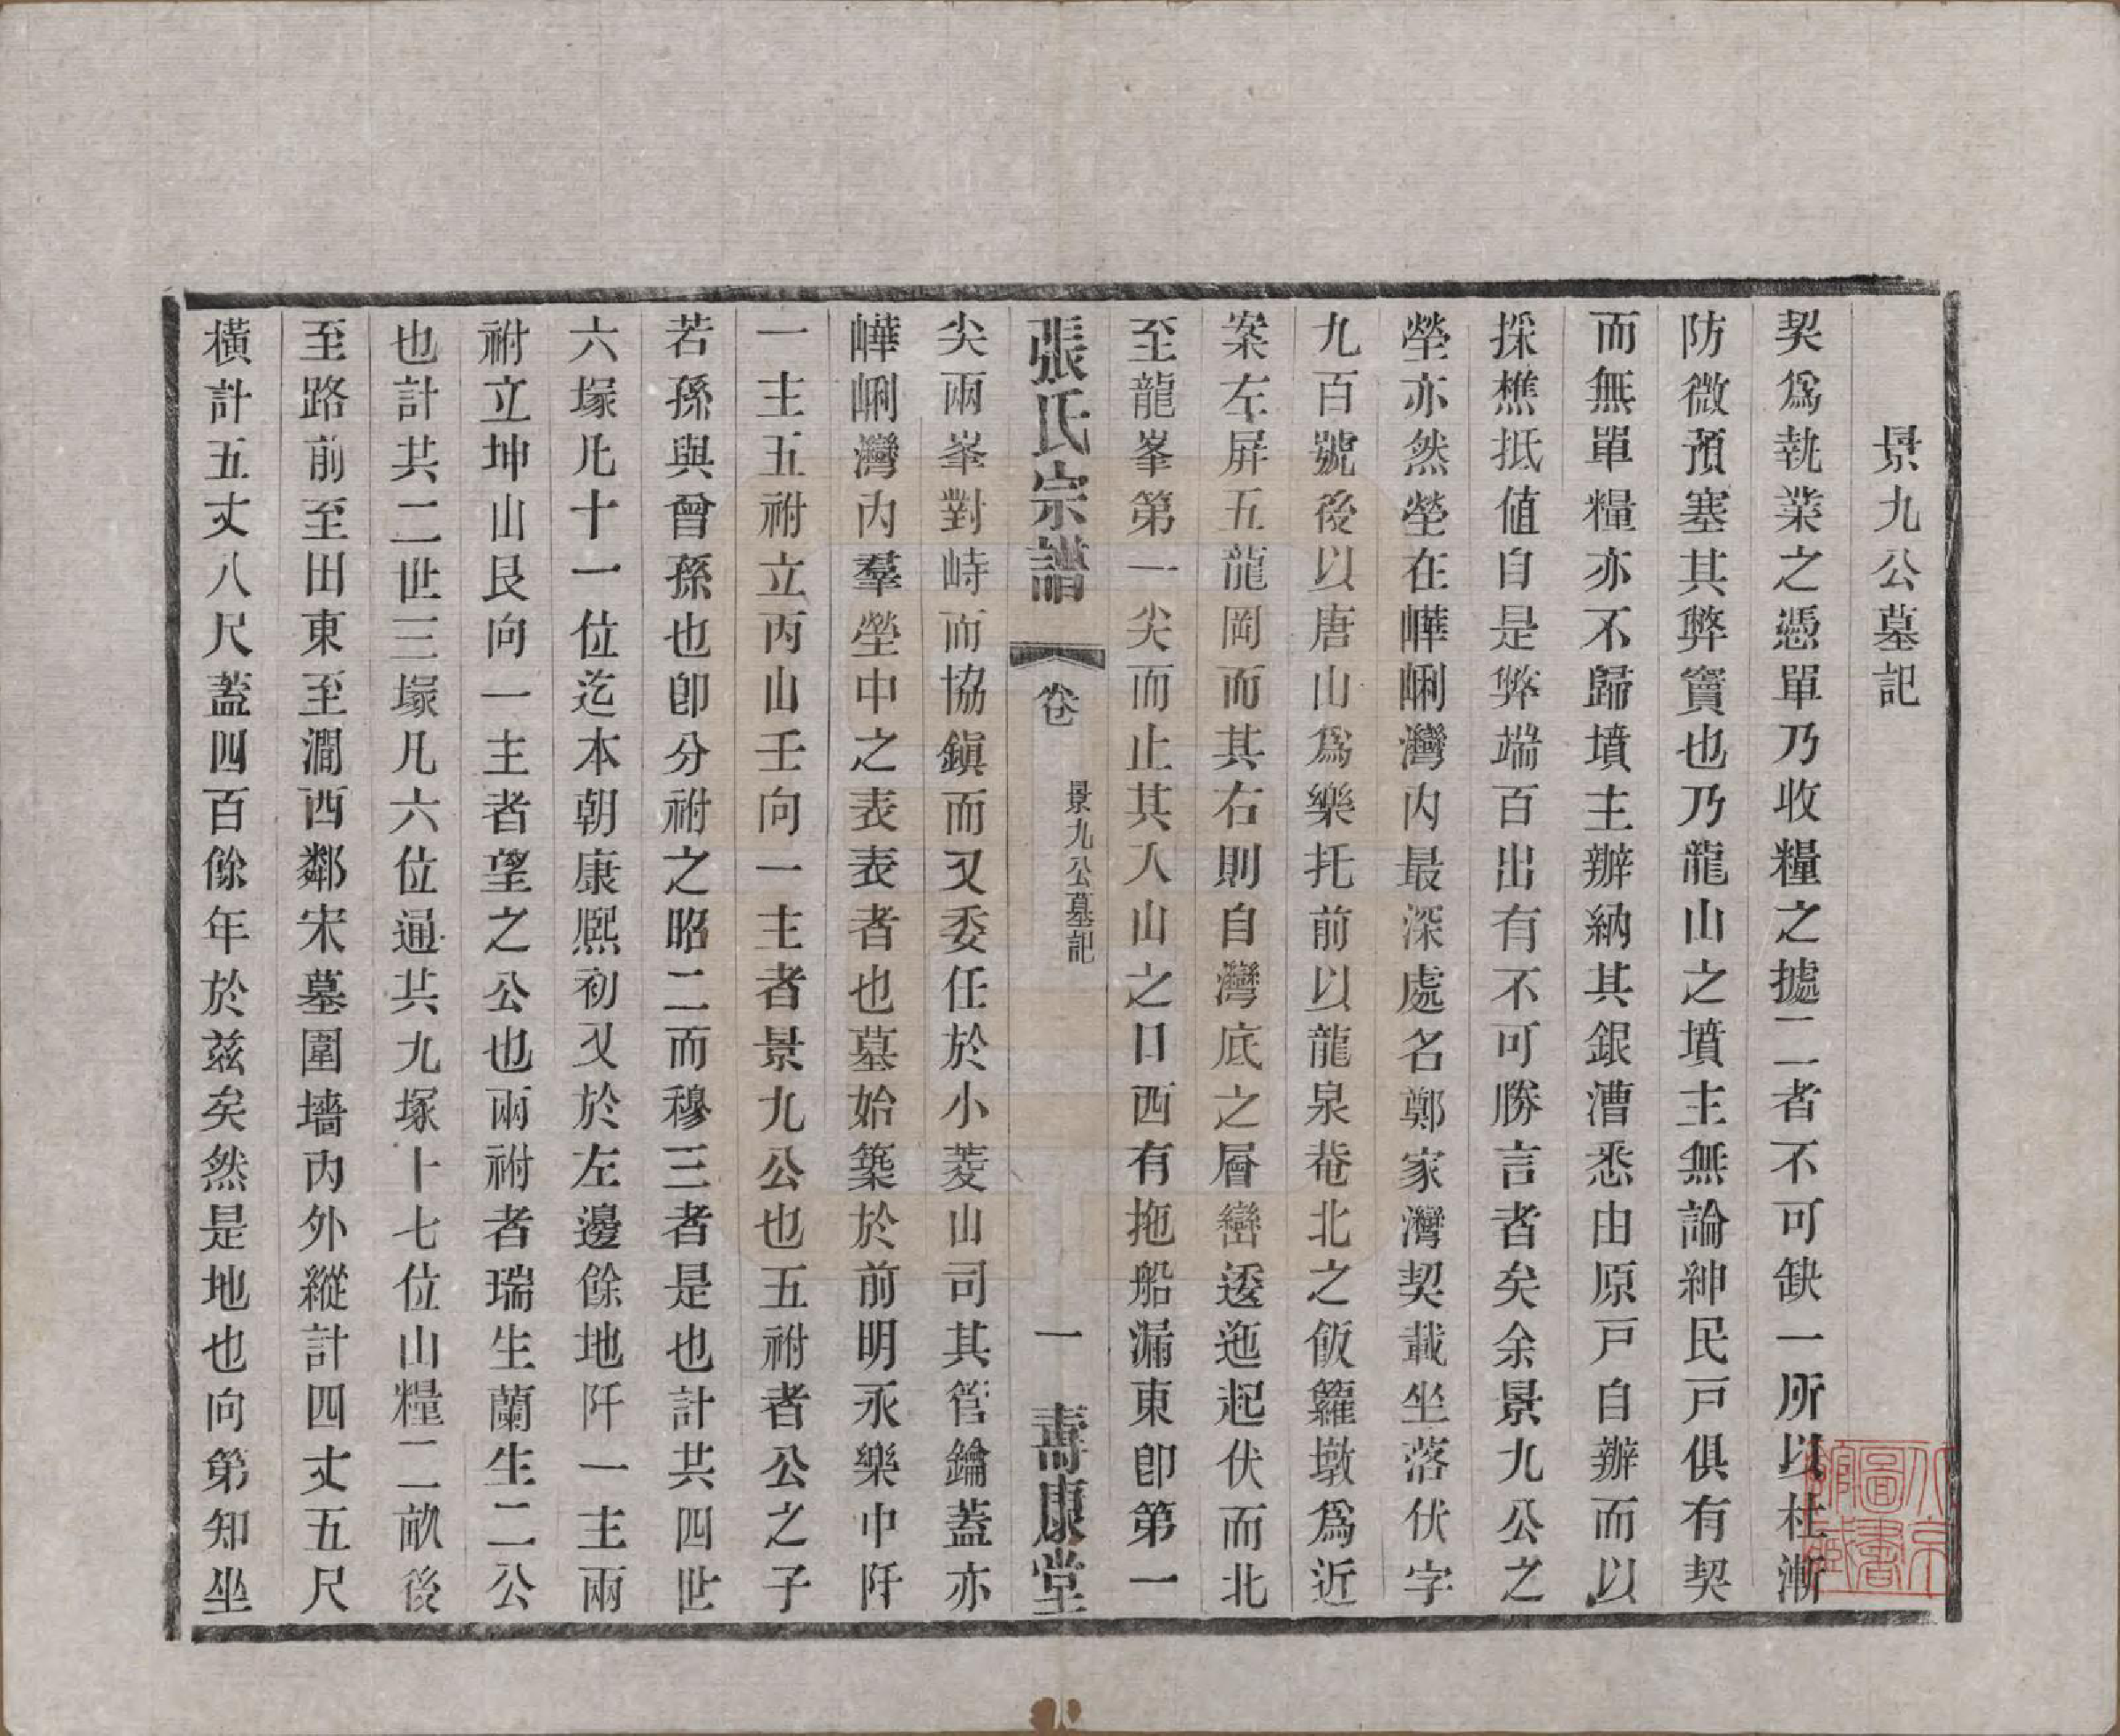 景九公墓記
契爲執業之憑單乃收糧之㨿二者不可缺一所以杜漸
防微預塞其弊竇也乃龍山之墳主無論紳民戸俱有契
而無單糧亦不歸墳主辦納其銀漕悉由原戸自辦而以
採樵抵值自是弊端百出有不可勝言者矣余景九公之
塋亦然塋在嶂峢灣内最深處名鄭家灣契載坐落伏字
九百號後以唐山爲樂托前以龍泉菴北之飯籮墩爲近
案左屏五龍岡而其右則自灣底之層巒逶迤起伏而北
至龍峯第一尖而止其入山之口西有拖船漏東卽第一
張氏宗譜 卷 景九公墓記 一 壽康堂
尖兩峯對峙而協鎭而又委任於小菱山司其管鑰蓋亦
嶂峢灣内羣塋中之表表者也墓始築於前明永樂中阡
一主五祔立丙山壬向一主者景九公也五祔者公之子
若孫與曾孫也卽分祔之昭二而穆三者是也計共四世
六塚凡十一位迄本朝康熙初又於左邊餘地阡一主兩
祔立坤山艮向一主者望之公也兩祔者瑞生蘭生二公
也計共二世三塚凡六位通共九塚十七位山糧二畝後
至路前至田東至澗西鄰宋墓圍墻内外縱計四丈五尺
橫計五丈八尺蓋四百餘年於兹矣然是地也向第知坐